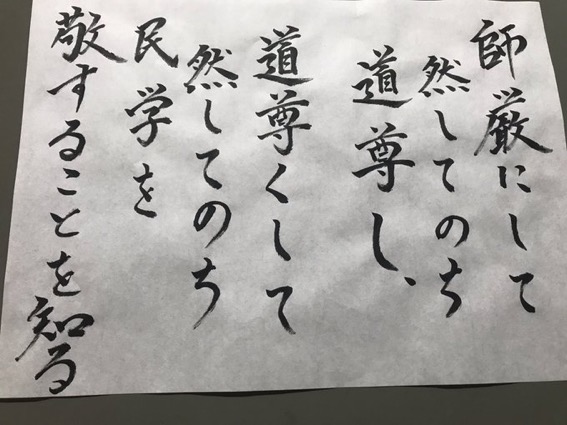 師厳にして
然してのち
道尊し、
道尊くして
然してのち
民学を
敬することを知る